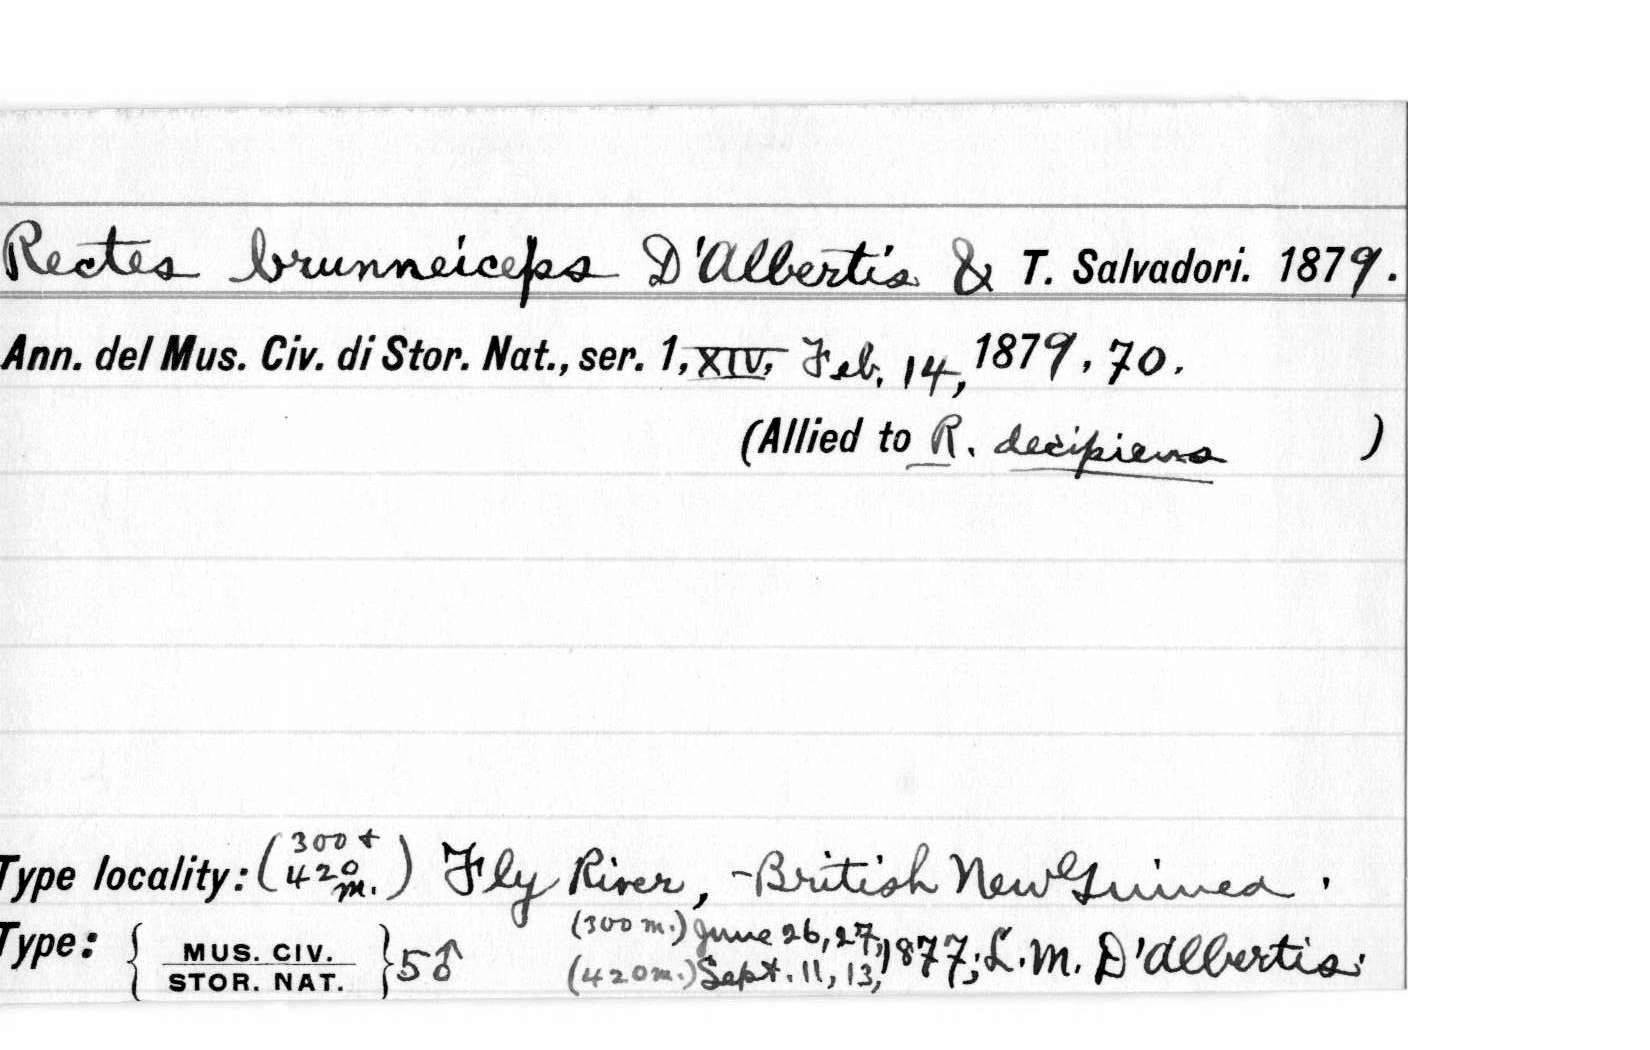 Rectes brunneiceps D'Albertis & T. Salvadori. 1879.
Ann. del Mus. Civ. di Stor. Nat., ser. 1, XIV, Feb. 14, 1879, 70.
(Allied to R. decipiens )
Type locality: (300 + 420 m.) Fly River, British New Guinea.
Type: { MUS. CIV. STOR. NAT. } 5♂ (300 m.) June 26, 27, (420 m.) Sept. 11, 13, 1877; L. M. D'Albertis.